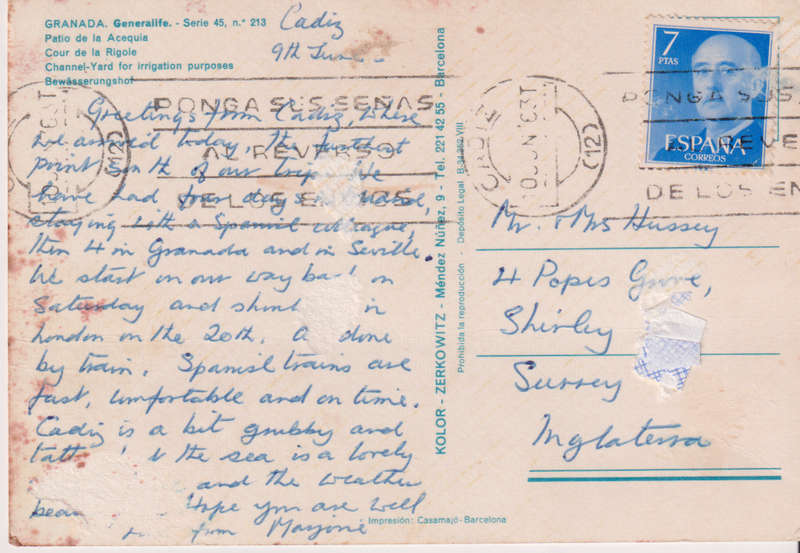 GRANADA. Generalife. - Serie 45, n.° 213
Patio de la Acequia
Cour de la Rigole
Channel-Yard for irrigation purposes
Bewässerungshof
Cadiz
9th June
Greetings from Cadiz, where
we arrived today, the furthest
point South of our trip. We
have had four days in
staying with a Spanish colleague,
then 4 in Granada and in Seville
We start on our way back on
Saturday and should in
London on the 20th. done
by train. Spanish trains are
fast, comfortable and on time.
Cadiz is a bit grubby and
the sea is a lovely
and the weather
Hope you are well
from Marjorie
KOLOR - ZERKOWITZ - Méndez Núñez, 9 - Tel. 221 42 55 - Barcelona
Prohibida la reproducción - Depósito Legal B. VIII
PONGA SUS SEÑAS
AL REVERSO
DE LOS ENVIOS
(M2)
10 JUN
(12)
PONGA SUS
AL REVE
DE LOS EN
7
PTAS
ESPAÑA
CORREOS
Mr. & Mrs Hussey
4 Popes Grove,
Shirley
Surrey
Inglaterra
Impresión: Casamajó-Barcelona